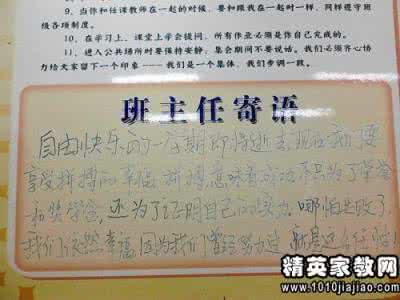 9、当你和任课教师在一起的时候，要和跟我在一起时一样，同样遵守班
级各项制度。
10、在学习上，课堂上学会提问，所有作业必须是你自己完成的。
11、进入公共场所时要保持安静；集会期间不要说话。我们必须齐心协
力给大家留下一个印象——我们是一个集体，我们步调一致。
班主任寄语
自由快乐的一星期即将逝去，现在我们要
享受拼搏的幸福，拼搏意味着成功不只为了荣誉
和奖学金，还为了证明自己的实力。哪怕失败了
我们仍然幸福，因为我们曾经努力过
精英家教网
www.1010jiajiao.com